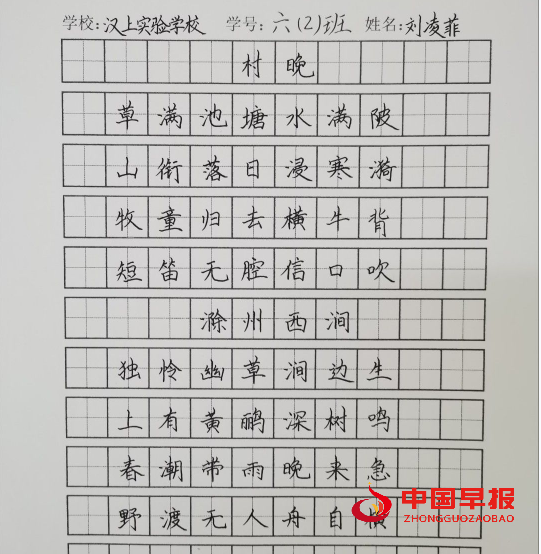 学校:汉上实验学校 学号:六(2)班 姓名:刘凌菲
村晚
草满池塘水满陂
山衔落日浸寒漪
牧童归去横牛背
短笛无腔信口吹
滁州西涧
独怜幽草涧边生
上有黄鹂深树鸣
春潮带雨晚来急
野渡无人舟自横
中国早报
ZHONGGUOZAOBAO